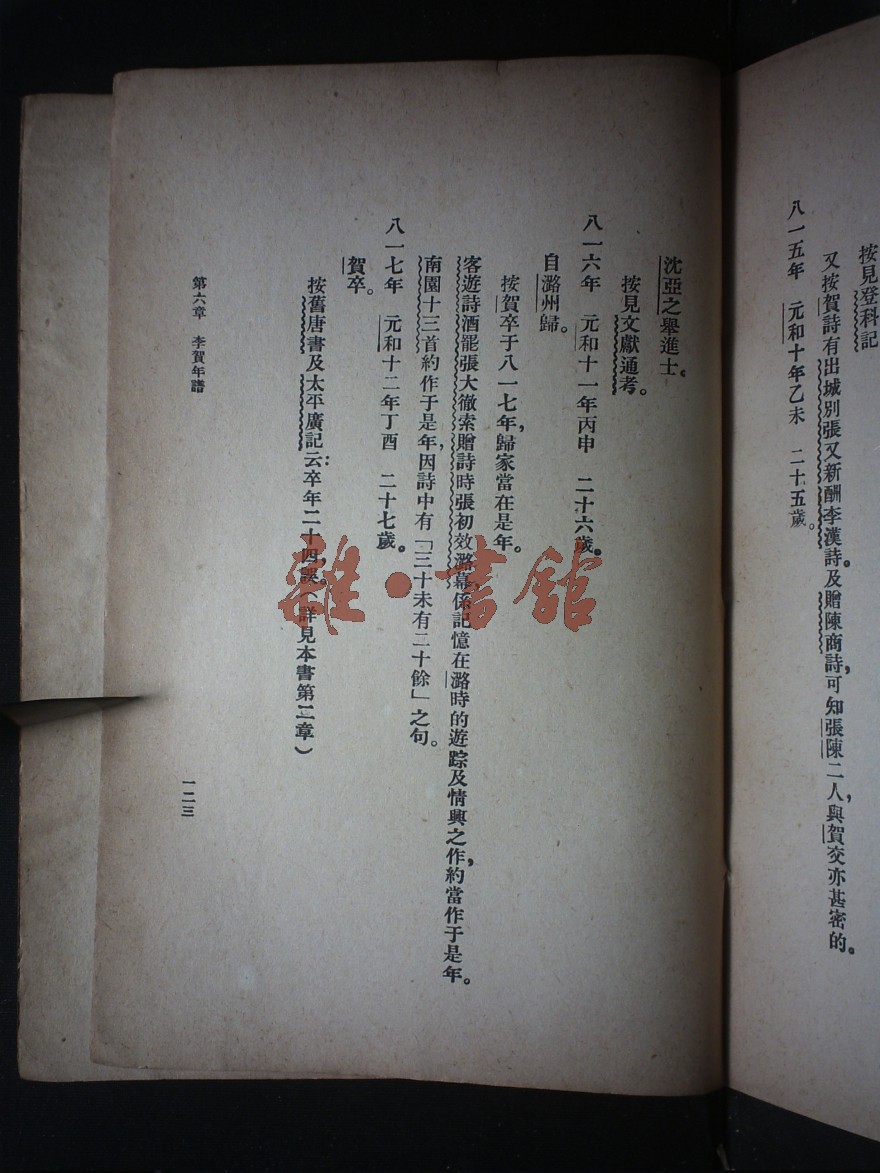 按見登科記
又按賀詩有出城別張又新酬李漢詩。及贈陳商詩，可知張陳二人，與賀交亦甚密的。
八一五年　元和十年乙未　二十五歲。
沈亞之舉進士。
按見文獻通考。
八一六年　元和十一年丙申　二十六歲。
自潞州歸。
按賀卒于八一七年，歸家當在是年。
客遊詩酒罷張大徹索贈詩時張初效潞幕係記憶在潞時的遊踪及情興之作，約當作于是年。
南園十三首約作于是年，因詩中有「三十未有二十餘」之句。
八一七年　元和十二年丁酉　二十七歲。
賀卒。
按舊唐書及太平廣記云：卒年二十四，誤。（詳見本書第二章）
第六章　李賀年譜
一二三
雜·書館